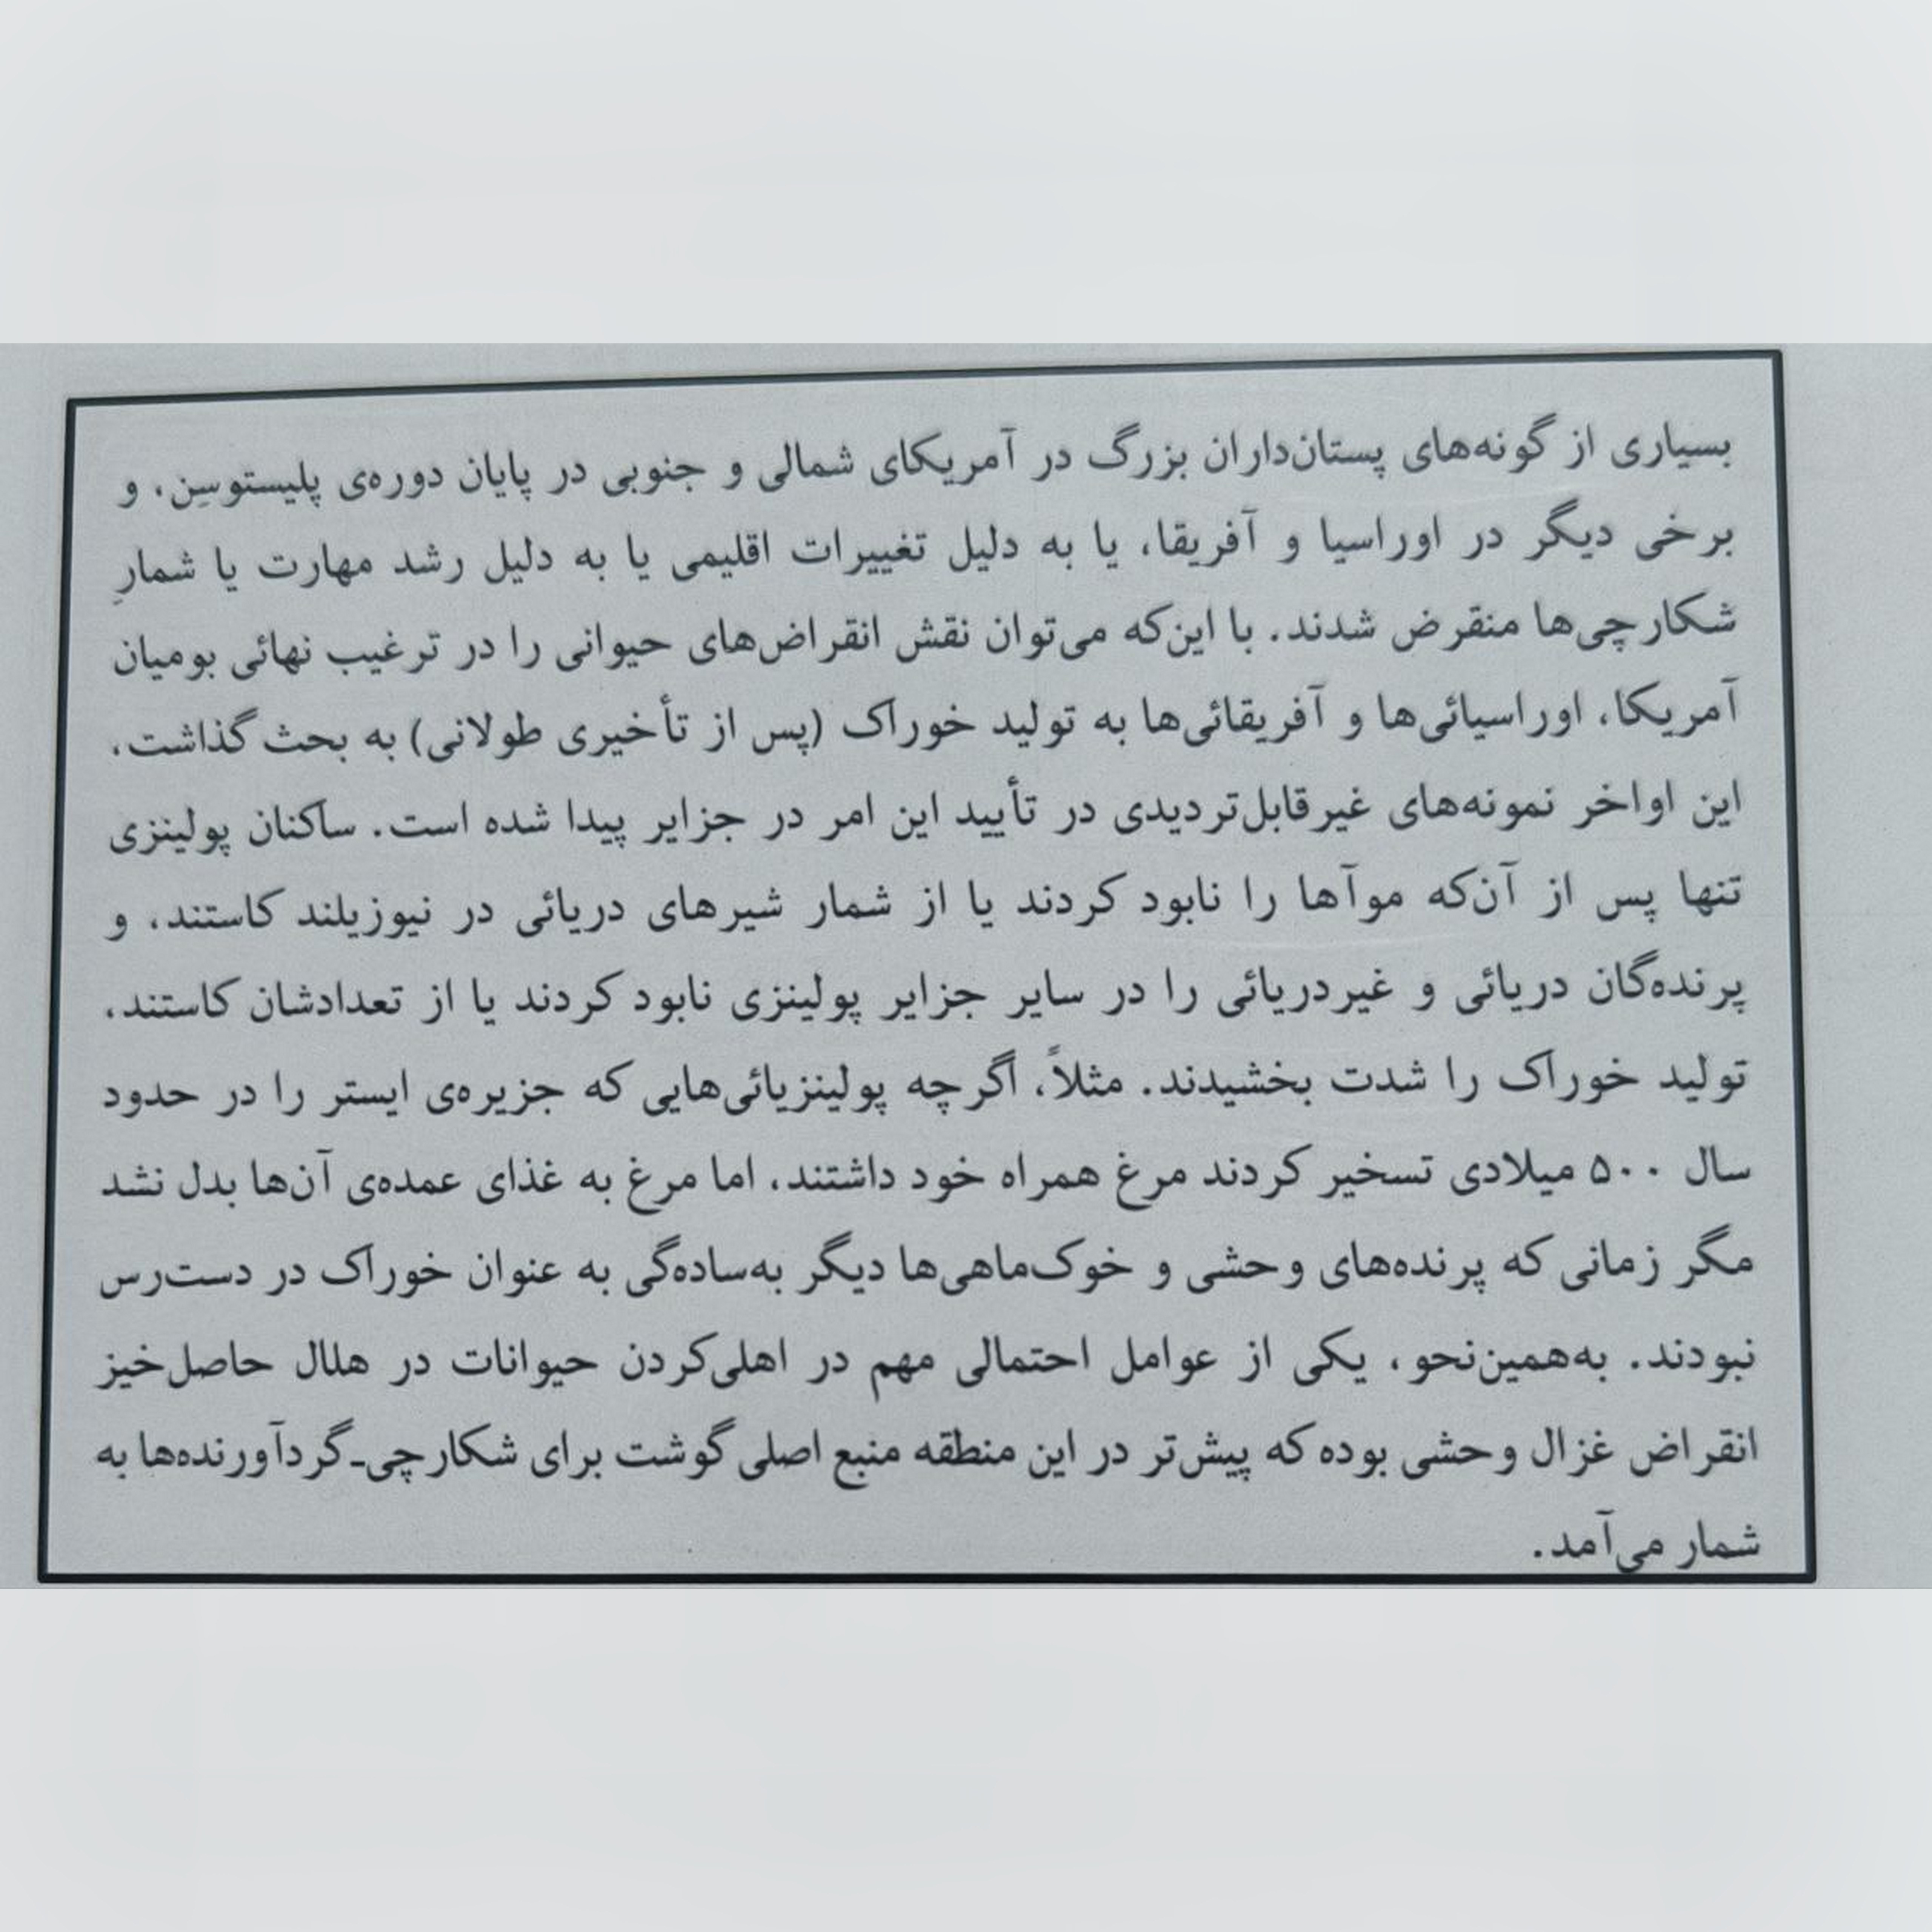 بسیاری از گونه‌های پستان‌داران بزرگ در آمریکای شمالی و جنوبی در پایان دوره‌ی پلیستوسِن، و
برخی دیگر در اوراسیا و آفریقا، یا به دلیل تغییرات اقلیمی یا به دلیل رشد مهارت یا شمارِ
شکارچی‌ها منقرض شدند. با این‌که می‌توان نقش انقراض‌های حیوانی را در ترغیب نهائی بومیان
آمریکا، اوراسیائی‌ها و آفریقائی‌ها به تولید خوراک (پس از تأخیری طولانی) به بحث گذاشت،
این اواخر نمونه‌های غیرقابل‌تردیدی در تأیید این امر در جزایر پیدا شده است. ساکنان پولینزی
تنها پس از آن‌که موآها را نابود کردند یا از شمار شیرهای دریائی در نیوزیلند کاستند، و
پرنده‌گان دریائی و غیردریائی را در سایر جزایر پولینزی نابود کردند یا از تعدادشان کاستند،
تولید خوراک را شدت بخشیدند. مثلاً، اگرچه پولینزیائی‌هایی که جزیره‌ی ایستر را در حدود
سال ۵۰۰ میلادی تسخیر کردند مرغ همراه خود داشتند، اما مرغ به غذای عمده‌ی آن‌ها بدل نشد
مگر زمانی که پرنده‌های وحشی و خوک‌ماهی‌ها دیگر به‌ساده‌گی به عنوان خوراک در دست‌رس
نبودند. به‌همین‌نحو، یکی از عوامل احتمالی مهم در اهلی‌کردن حیوانات در هلال حاصل‌خیز
انقراض غزال وحشی بوده که پیش‌تر در این منطقه منبع اصلی گوشت برای شکارچی‌ـ‌گردآورنده‌ها به
شمار می‌آمد.